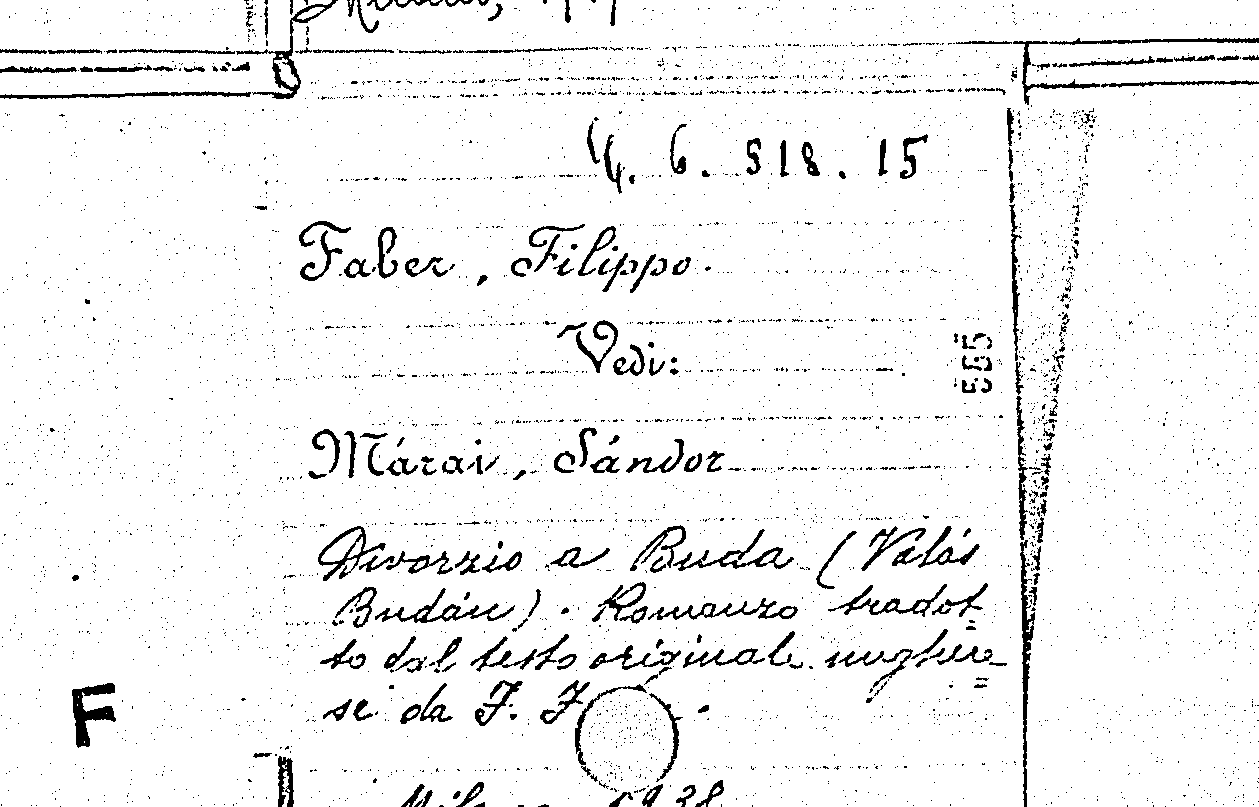 4. 6. 518. 15
Faber, Filippo.
Vedi:
505
Márai, Sándor
Divorzio a Buda (Válás
Budán). Romanzo tradot=
to dal testo originale unghere=
se da F. F
F
1938